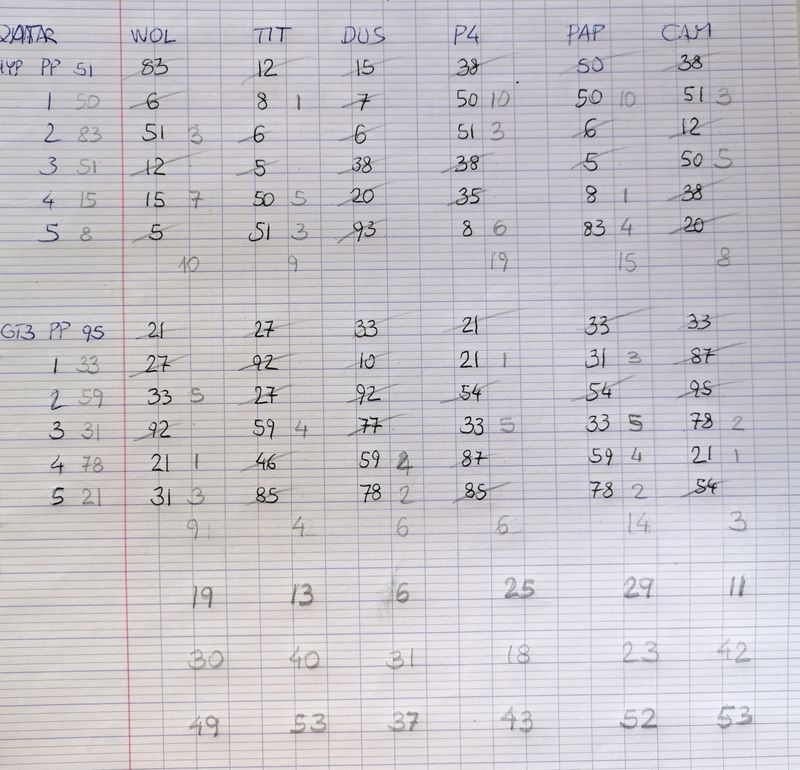 QATAR WOL TIT DUS P4 PAP CAM
HYP PP 51 83 12 15 38 50 38
1 50 6 8 1 7 50 10 50 10 51 3
2 83 51 3 6 6 51 3 6 12
3 51 12 5 38 38 5 50 5
4 15 15 7 50 5 20 35 8 1 38
5 8 5 51 3 93 8 6 83 4 20
10 9 19 15 8
GT3 PP 95 21 27 33 21 33 33
1 33 27 92 10 21 1 31 3 87
2 59 33 5 27 92 54 54 95
3 31 92 59 4 77 33 5 33 5 78 2
4 78 21 1 46 59 4 87 59 4 21 1
5 21 31 3 85 78 2 85 78 2 54
9 4 6 6 14 3
19 13 6 25 29 11
30 40 31 18 23 42
49 53 37 43 52 53